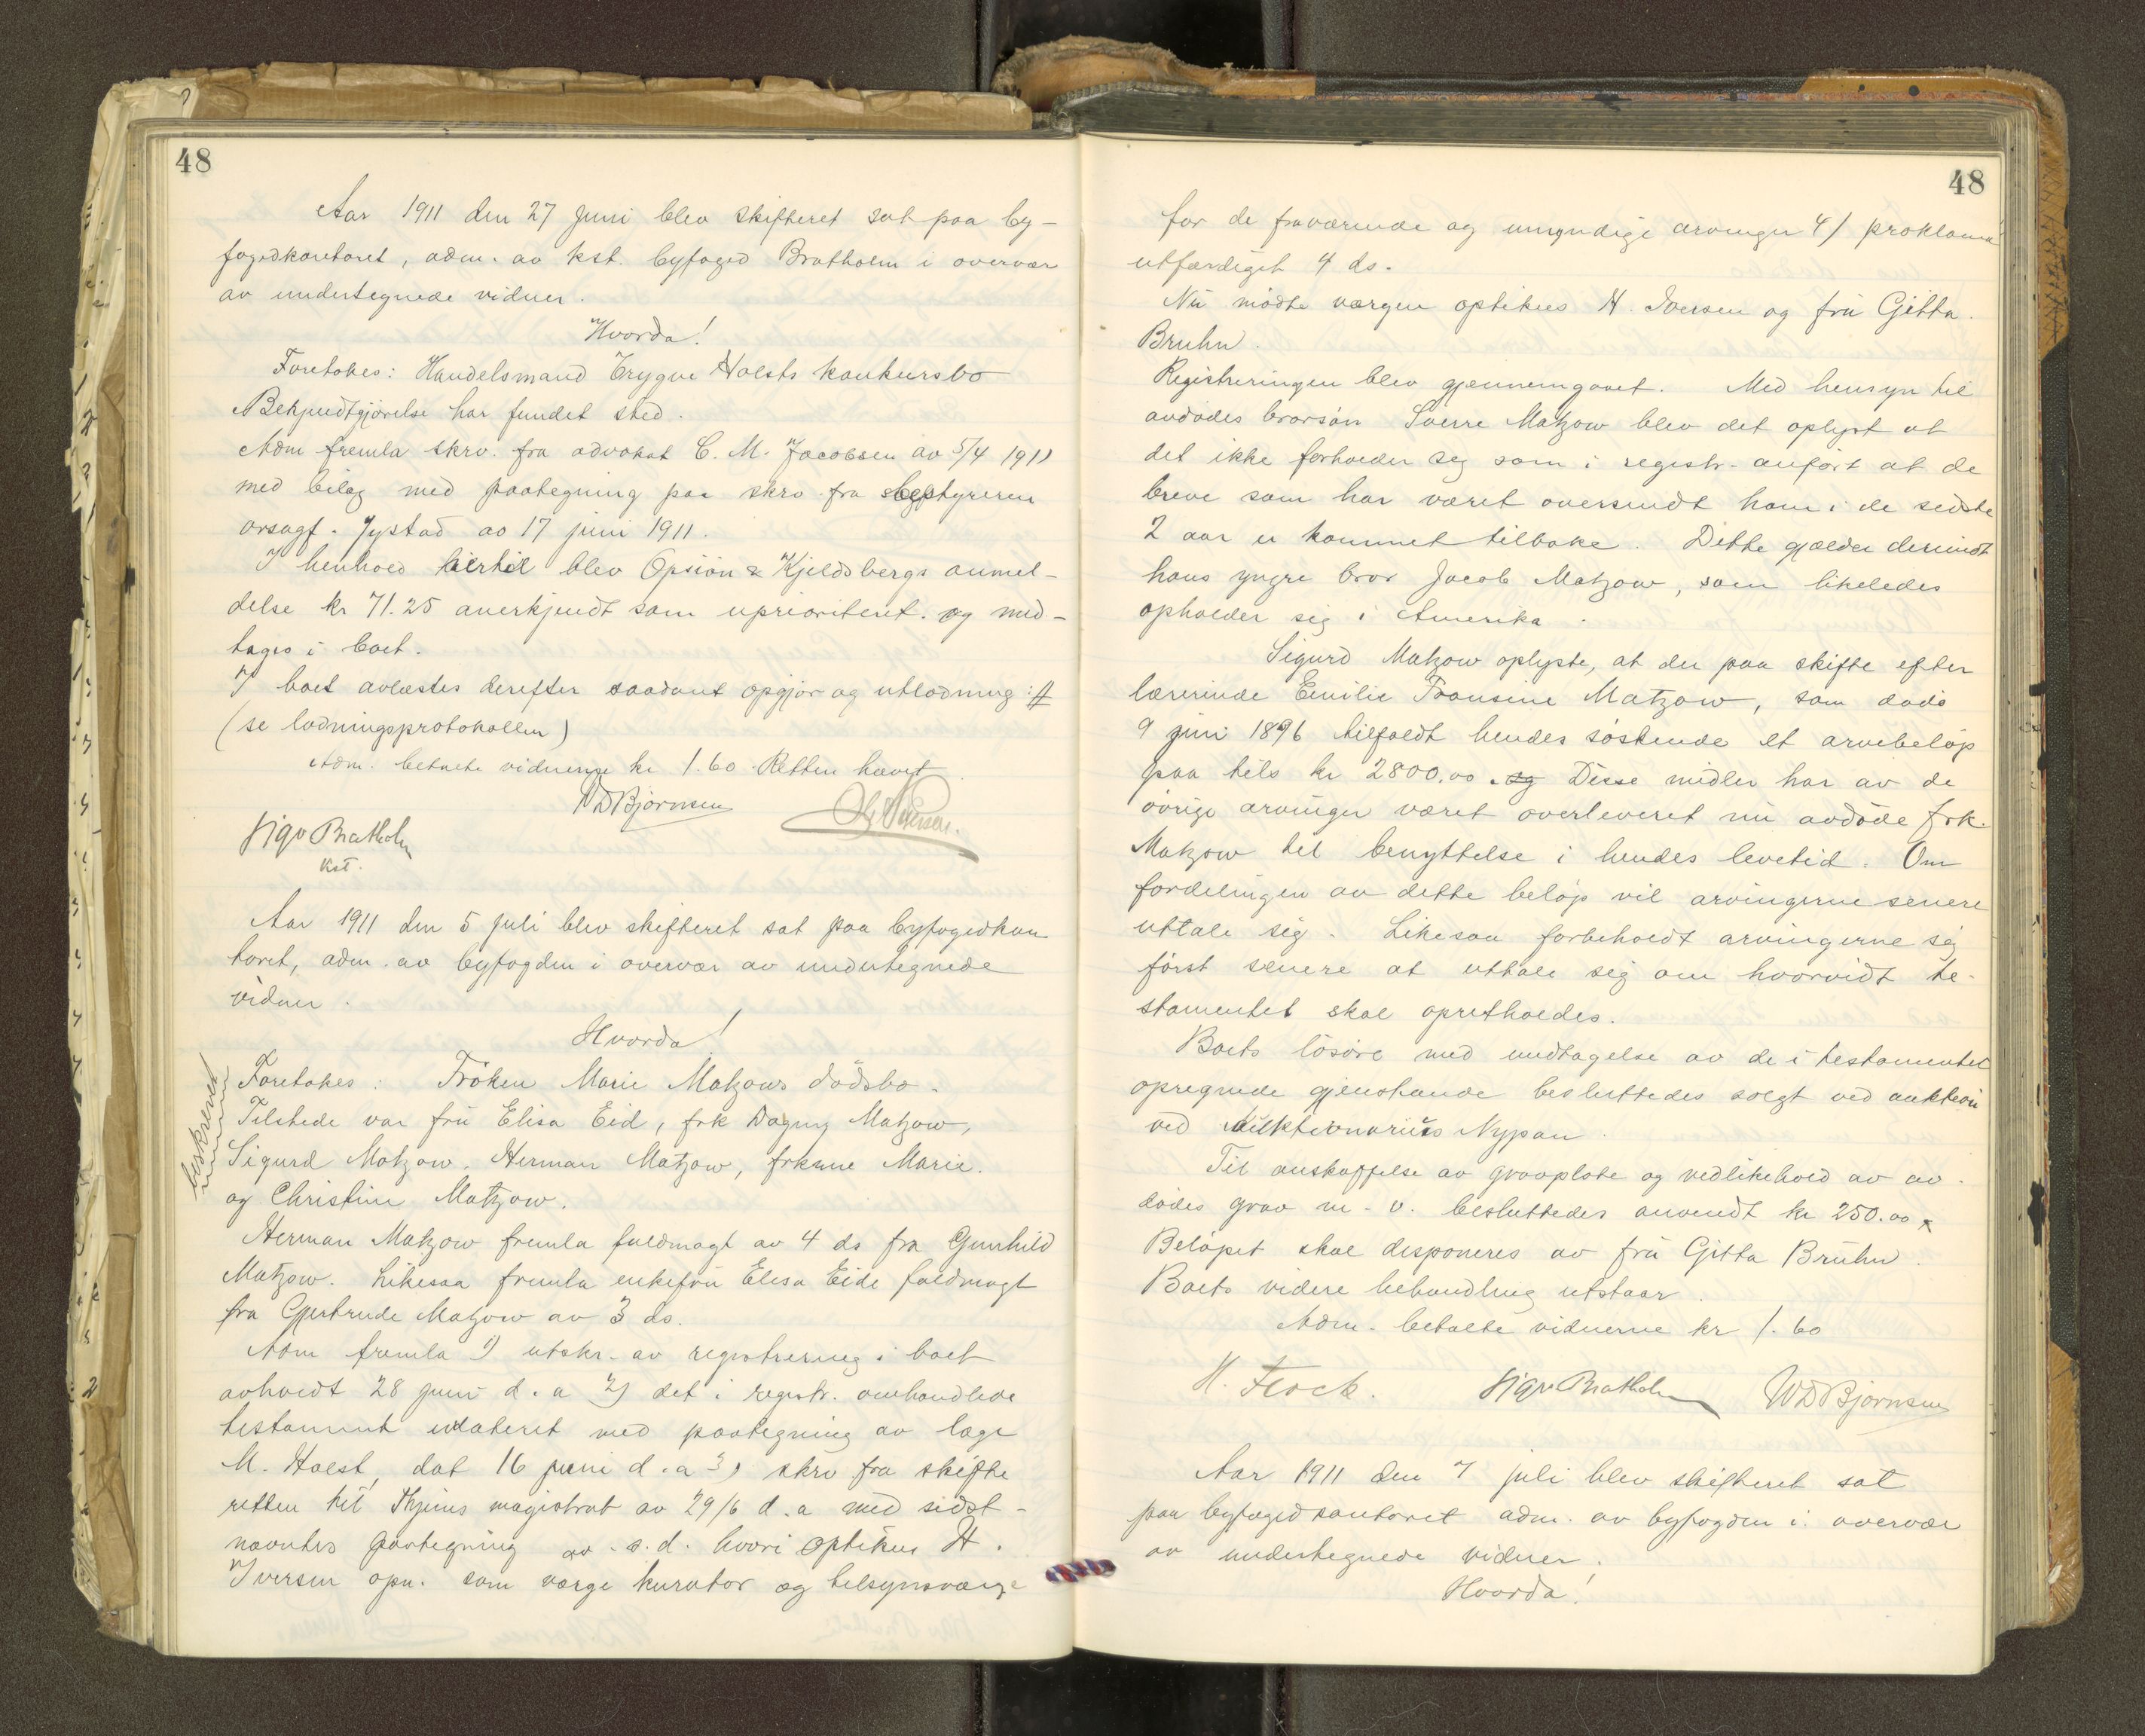 48
Aar 1911 den 27 juni blev skifteret sat paa by-
fogedkontoret, adm. av kst. byfoged Bratholm i overvær
av undertegnede vidner.
Hvorda!
Foretokes: Handelsmand Trygve Holsts konkursbo
Bekjendtgjørelse har fundet sted.
Adm fremla skrv. fra advokat C. M. Jacobsen av 5/4 1911
med bilag med paategning paa skrv fra bestyreren
orsagf. Jystad av 17 juni 1911.
I henhold hertil blev Opsion & Kjeldsbergs anmel-
delse kr 71.25 anerkjendt som uprioritert. og med-
tages i boet.
I boet avlæstes derefter saadant opgjør og utlodning:
(se lodningsprotokollen)
Adm. betalte vidnerne kr 1.60. Retten hævet
WDBjørnsen
Sigv Bratholm
kst.
Aar 1911 den 5 juli blev skifteret sat paa byfogedkon
toret, adm. av byfogden i overvær av undertegnede
vidner.
Hvorda!
beskrevet
Foretokes: Frøken Marie Matzows dødsbo.
Tilstede var fru Elisa Eid, frk Dagny Matzow,
Sigurd Matzow. Herman Matzow, frkne Marie.
og Christine Matzow.
Herman Matzow fremla fuldmagt av 4 ds fra Gunhild
Matzow. Likesaa fremla enkefru Elisa Eide fuldmagt
fra Gjertrude Matzow av 3 ds.
Adm fremla 1) utskr. av registrering i boet
avholdt 28 juni d. a 2) det i registr. omhandlede
testament udateret med paategning av læge
M. Holst, dat 16 juni d. a 3) skrv fra skifte
retten til Thjems magistrat av 29/6 d. a med sidst-
nævntes paategning av s. d. hvori optikus H.
Iversen opn. som værge kurator og tilsynsværge
48
for de fraværende og umyndige arvinger 4) proklama
utfærdiget 4 ds.
Nu mødte værgen optikus H. Iversen og fru Gitta.
Bruhn.
Registreringen blev gjennemgaaet. Med hensyn til
avdødes brorsøn Sverre Matzow blev det oplyst at
det ikke forholder seg som i registr. anført at de
breve som har været oversendt ham i de sidste
2 aar er kommet tilbake. Dette gjælder derimot
hans yngre bror Jacob Matzow, som likeledes
opholder sig i Amerika.
Sigurd Matzow oplyste, at der paa skifte efter
lærerinde Emilie Fransine Matzow, som døde
9 juni 1896 tilfaldt hendes søskende et arvebeløp
paa tils kr 2800.00. og Disse midler har av de
øvrige arvinger været overleveret nu avdøde frk.
Matzow til benyttelse i hendes levetid. Om
fordelingen av dette beløp vil arvingerne senere
uttale sig. Likesaa forbeholdt arvingerne sig
først senere at uttale sig om hvorvidt te-
stamentet skal opretholdes.
Boets løsøre med undtagelse av de i testamentet
opregnede gjenstande besluttedes solgt ved auktion
ved auktionarius Nypan.
Til anskaffelse av gravplate og vedlikehold av av-
dødes grav m. v. besluttedes anvendt kr 250.00
Beløpet skal disponeres av fru Gitta Bruhn.
Boets videre behandling utstaar.
Adm. betalte vidnerne kr 1.60
H. Flock. Sigv Bratholm WDBjørnsen
Aar 1911 den 7 juli blev skifteret sat
paa byfogedkontoret adm. av byfogden i overvær
av undertegnede vidner.
Hvorda!